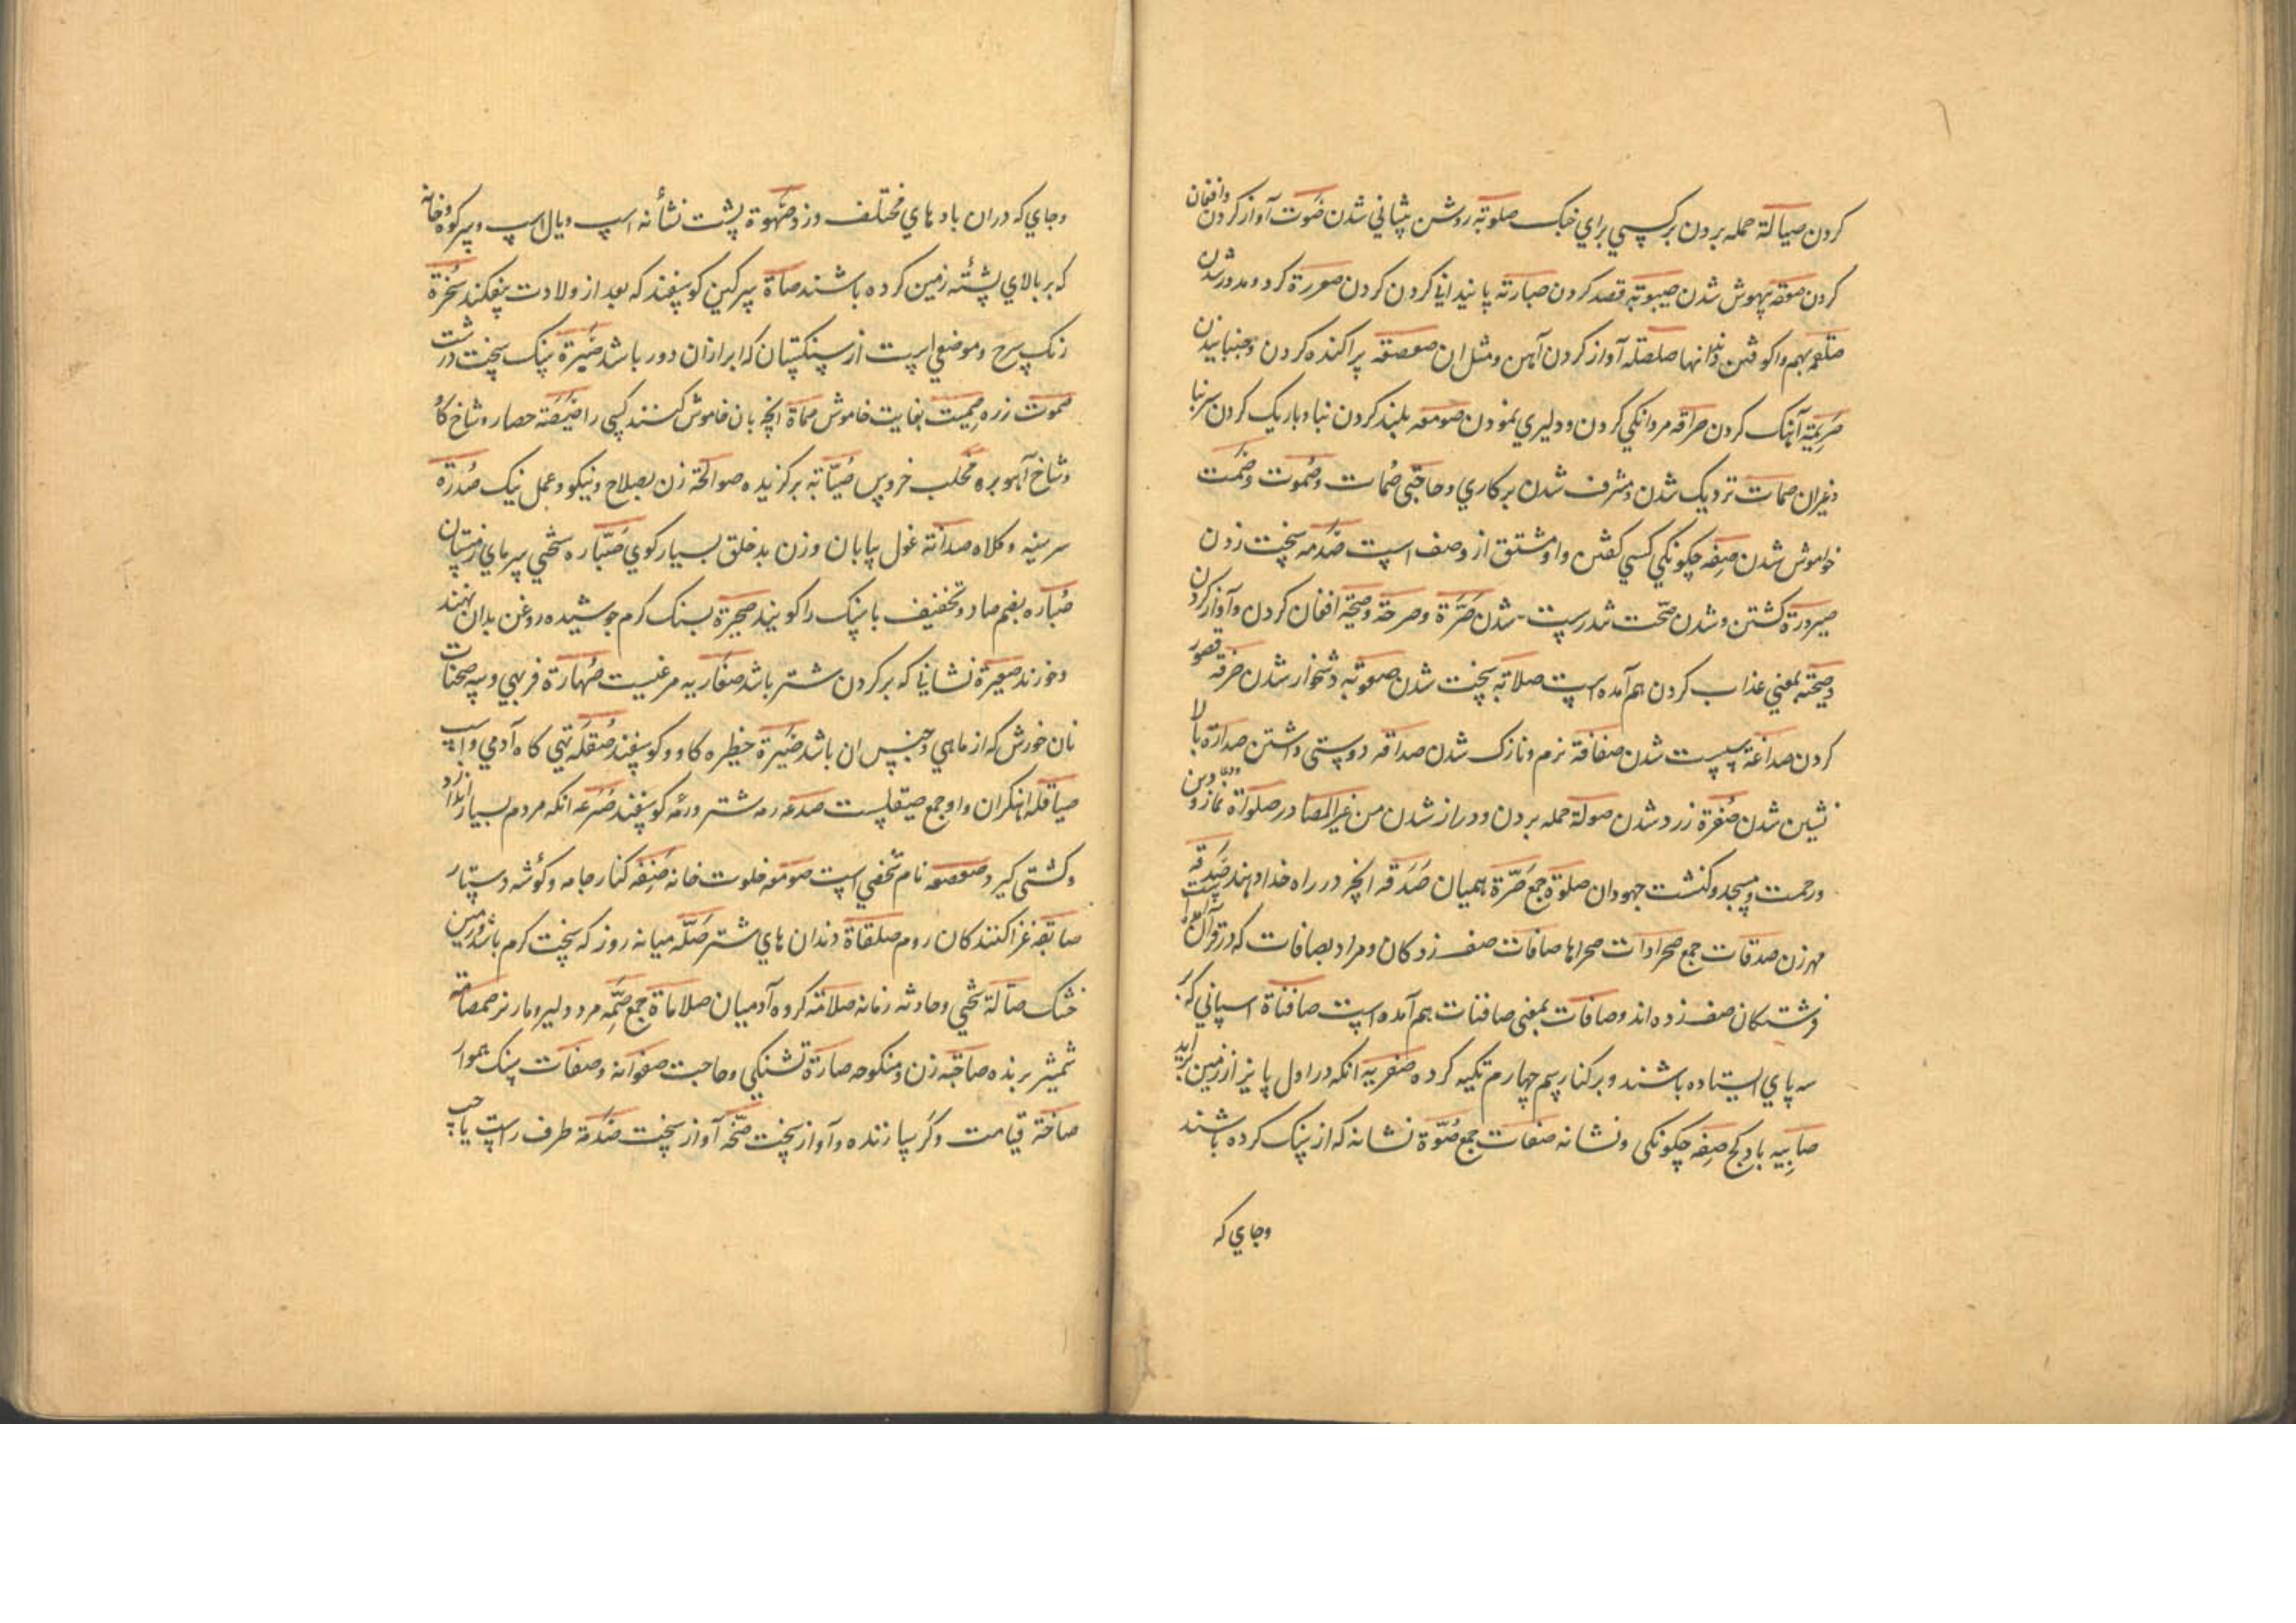 کردن صیالة حمله بردن بر کسی برای جنک صلوتة روشن پیشانی شدن صوت آواز کردن وافغان
کردن صعقه بیهوش شدن صیبوبة قصد کردن صبارته پایندانی کردن کردن صوررة کرد و مدور شدن
صلقمه بهم واکوفتن دندانها صلصله آواز کردن آهن و مثل ان صعصعه پراکنده کردن و جنبانیدن
صریمة آهنک کردن صرافه مردانکی کردن و دلیری نمودن صومعه بلند کردن نبا و باریک کردن سر نبا
وغیران صمات نزدیک شدن و مشرف شدن بر کاری و حاجتی صُمات و صُموت و صَمت
خواموش شدن صِفه چکونکی کسی کفتن و او مشتق از وصف است صَدمه سخت زدن
صیرورة کشتن و شدن صحّت تندرست شدن صَرّة و صرخة و صیحة افغان کردن و آواز کردن
و صیحة بمعنی عذاب کردن هم آمده است صلابة سخت شدن صعوبة دشخوار شدن صرفه قصور
کردن صداغة سست شدن صفافة نرم و نازک شدن صداقه دوستی داشتن صدارة بالا
نشین شدن صُفرة زرد شدن صولة حمله بردن و دراز شدن من غیر المصادر صلوة نماز و دین
و رحمت و مسجد و کنشت جهودان صلوة جمع صَرّة همیان صَدَقه انچه در راه خدا دهند صَدِقة
مهر زن صدقات جمع صحرادات صحراها صافات صف زدکان و مراد بصافات که در قرآن آمده است
فرشتکان صف زده اند و صافات بمعنی صافنات هم آمده است صافناة اسپانی که بر
سه پای ایستاده باشند و بر کنار سم چهارم تکیه کرده صفریه انکه در اول پاییز از زمین براید
صابیه باد کج صِفه چکونکی و نشانه صفات جمع صُوّة نشانه که از سنک کرده باشند
وجای که
وجای که دران بادهای مختلف وزد صَهوة پشت نشأنه اسپ و یال اسپ و سر کوه و خانه
که بر بالای پشتهٔ زمین کرده باشند صاة سرکین کوسفند که بعد از ولادت بیفکند صُخرة
رنک سرخ و موضعی است از سنکستان که ابر ازان دور باشد صَیرة سنک سخت درشت
صموت زره صِمّیت بغایت خاموش صماة انچه بان خاموش کنند کسی را صیصَة حصار و شاخ کاو
و شاخ آهو بره مخلب خروس صُیّابة برکزیده صوالحة زن بصلاح و نیکو و عمل نیک صُدرَة
سرسینه و کلاه صدانة غول بیابان و زن بدخلق بسیار کوی صَبّاره سختی سرمای زمستان
صُباره بضم صاد و تخفیف با سنک را کویند صَحیرة بسنک کرم جوشیده روغن بدان نهند
و خورند صیعریة نشانی که بر کردن شتر باشد صفاریه مرغیست صُهارة فربهی و پیه صحنات
نان خورش که از ماهی و جنس ان باشد صَیرة حظیره کاو و کوسفند صُقله تهی کاه آدمی و اسپ
صیاقله اهنکران و او جمع صیقلست صدعه رمه شتر و رمهٔ کوسفند صُرَعه انکه مردم بسیار اندازد
و کشتی کیر و صعصعه نام شخصی است صومعه خلوت خانه صَنِفه کنار جامه و کوشه دستار
صایفه غزا کنندکان روم صلقاة دندان های شتر صَکّه میانه روز که سخت کرم باشد و زمین
خشک صآلة سختی و حادثه زمانه صلامة کروه آدمیان صلاماة جمع صَمّه مرد دلیر و مار نر صمصامة
شمشیر برنده صاحبة زن و منکوحه صارّة تشنکی و حاجت صفوانه و صفات سنک هموار
صاخّة قیامت و کر سازنده و آواز سخت صَخّه آواز سخت صَدَمة طرف راست یا چپ